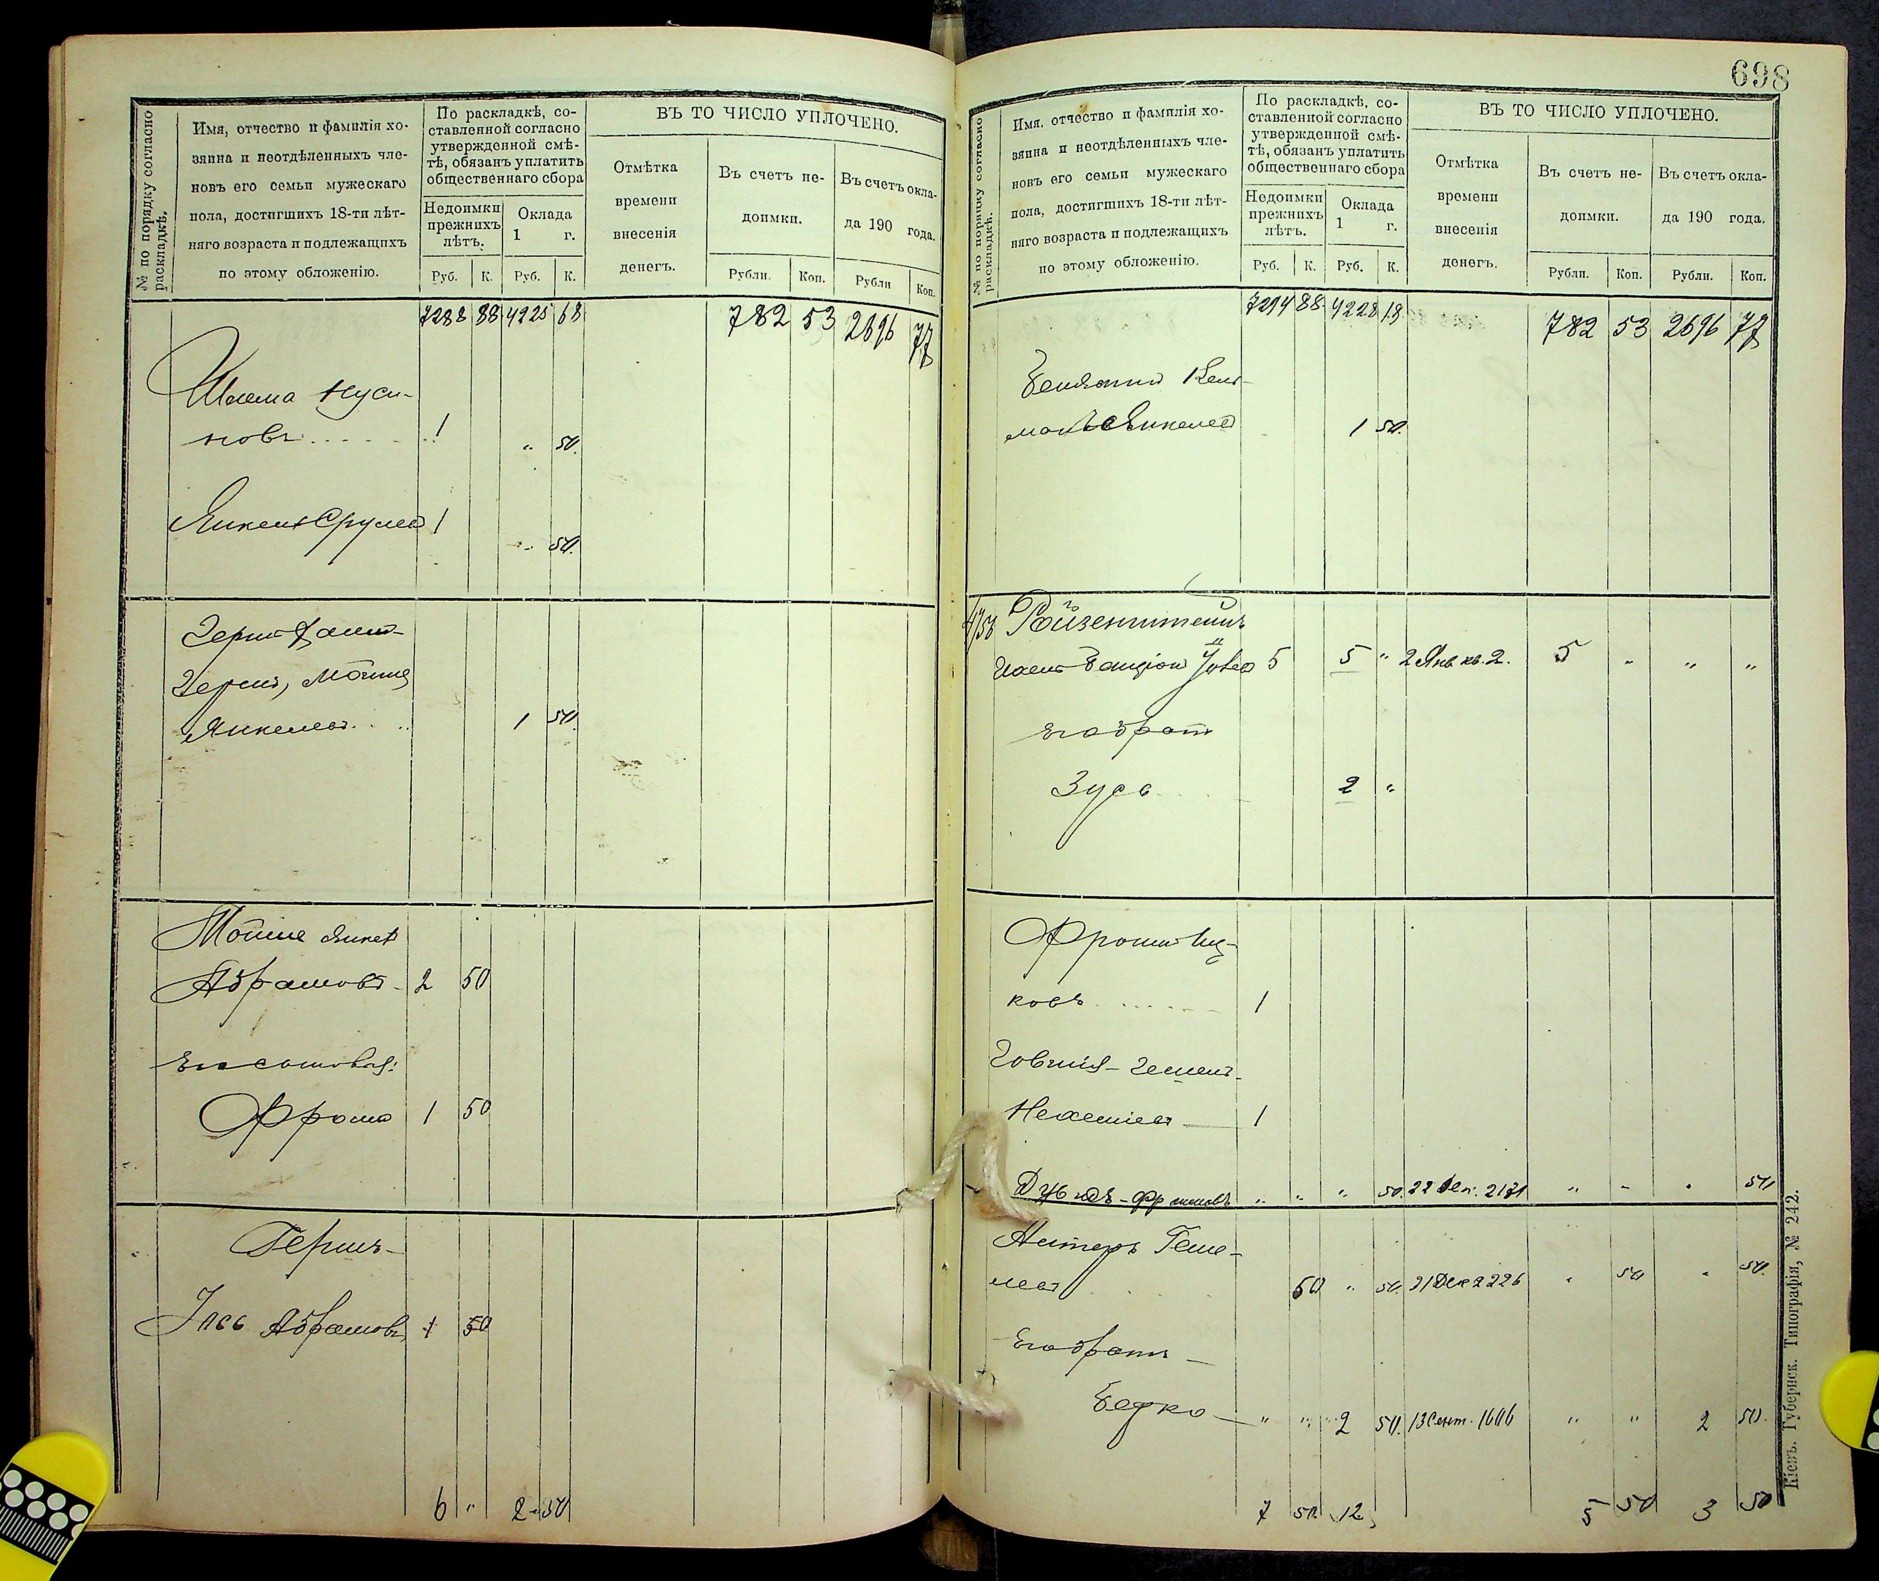 698
№ по порядку согласно раскладкѣ.
Имя, отчество и фамилія хо-
зяина и неотдѣленныхъ чле-
новъ его семьи мужескаго
пола, достигшихъ 18-ти лѣт-
няго возраста и подлежащихъ
по этому обложенію.
По раскладкѣ, со-
ставленной согласно
утвержденной смѣ-
тѣ, обязанъ уплатить
общественнаго сбора
Недоимки
прежнихъ
лѣтъ.
Оклада
1 г.
Руб. К. Руб. К.
ВЪ ТО ЧИСЛО УПЛОЧЕНО.
Отмѣтка
времени
внесенія
денегъ.
Въ счетъ не-
доимки.
Въ счетъ окла-
да 190 года.
Рубли. Коп. Рубли Коп.
7288 88 4225 68 782 53 2696 77
Шлема Нуси-
новъ 1 " 50.
Янкель Срулев 1
" 50.
Герш
Гершъ, Мойше
Янкелев 1 50.
Мойше Янкел
Абрамовъ 2 50
Его сыновья:
Фроим 1 50
Гершъ-
Іось Абрамовъ 1 50
6 " 2 50
№ по порядку согласно раскладкѣ.
Имя, отчество и фамилія хо-
зяина и неотдѣленныхъ чле-
новъ его семьи мужескаго
пола, достигшихъ 18-ти лѣт-
няго возраста и подлежащихъ
по этому обложенію.
По раскладкѣ, со-
ставленной согласно
утвержденной смѣ-
тѣ, обязанъ уплатить
общественнаго сбора
Недоимки
прежнихъ
лѣтъ.
Оклада
1 г.
Руб. К. Руб. К.
ВЪ ТО ЧИСЛО УПЛОЧЕНО.
Отмѣтка
времени
внесенія
денегъ.
Въ счетъ не-
доимки.
Въ счетъ окла-
да 190 года.
Рубли. Коп. Рубли. Коп.
7294 88 4228 18 782 53 2696 77
Беніамин Кел-
Янкелев 1 50.
Ройзенштейнъ
5 5 " 2 Янв кв. 2. 5 " " "
Его братъ
Зусь 2 "
Фроим Иц-
ковъ 1
Говшія-
Нехеміев 1
Дувидъ-Фроимовъ " " " 50. 22 50
Геше-
лев 50 " 50. 21 Дек 2226 " 50 " 50.
Его братъ
Берко " " 2 50. 13 Сент. 1606 " " 2 50.
7 50 12 " 5 50 3 50
Кіевъ. Губернск. Типографія, № 242.